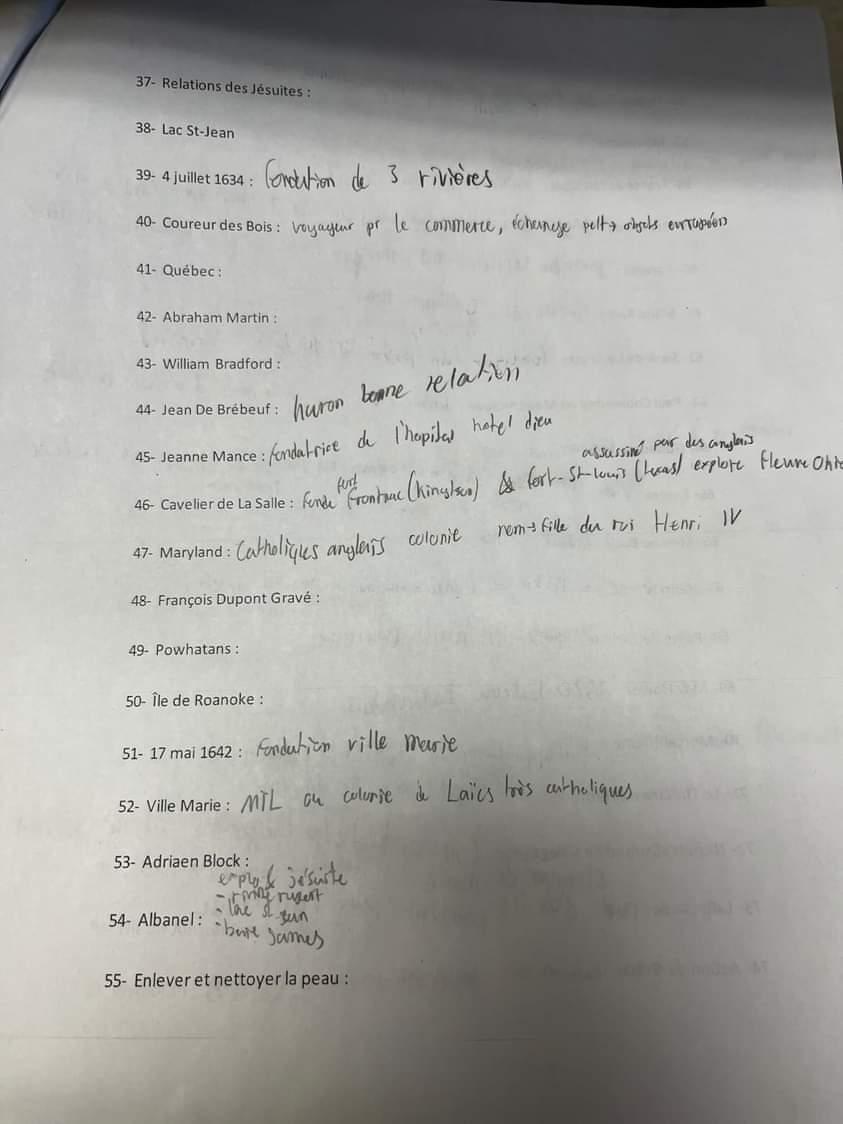 37- Relations des Jésuites :
38- Lac St-Jean
39- 4 juillet 1634 : Fondation de 3 rivières
40- Coureur des Bois : voyageur pr le commerce, échange pelt → objets européen
41- Québec :
42- Abraham Martin :
43- William Bradford :
44- Jean De Brébeuf : huron bonne relation
45- Jeanne Mance : fondatrice de l'hopital hotel dieu
assassiné par des anglais
fort
46- Cavelier de La Salle : fonde Frontnac (Kingston) & fort-St-louis (texas) explore fleuve Ohio
47- Maryland : Catholiques anglais colonie nom → fille du roi Henri IV
48- François Dupont Gravé :
49- Powhatans :
50- Île de Roanoke :
51- 17 mai 1642 : Fondation ville marie
52- Ville Marie : MTL ou colonie de Laïcs très catholiques
53- Adriaen Block :
jésuite
- rivière rupert
- lac st jean
54- Albanel : - baie James
55- Enlever et nettoyer la peau :